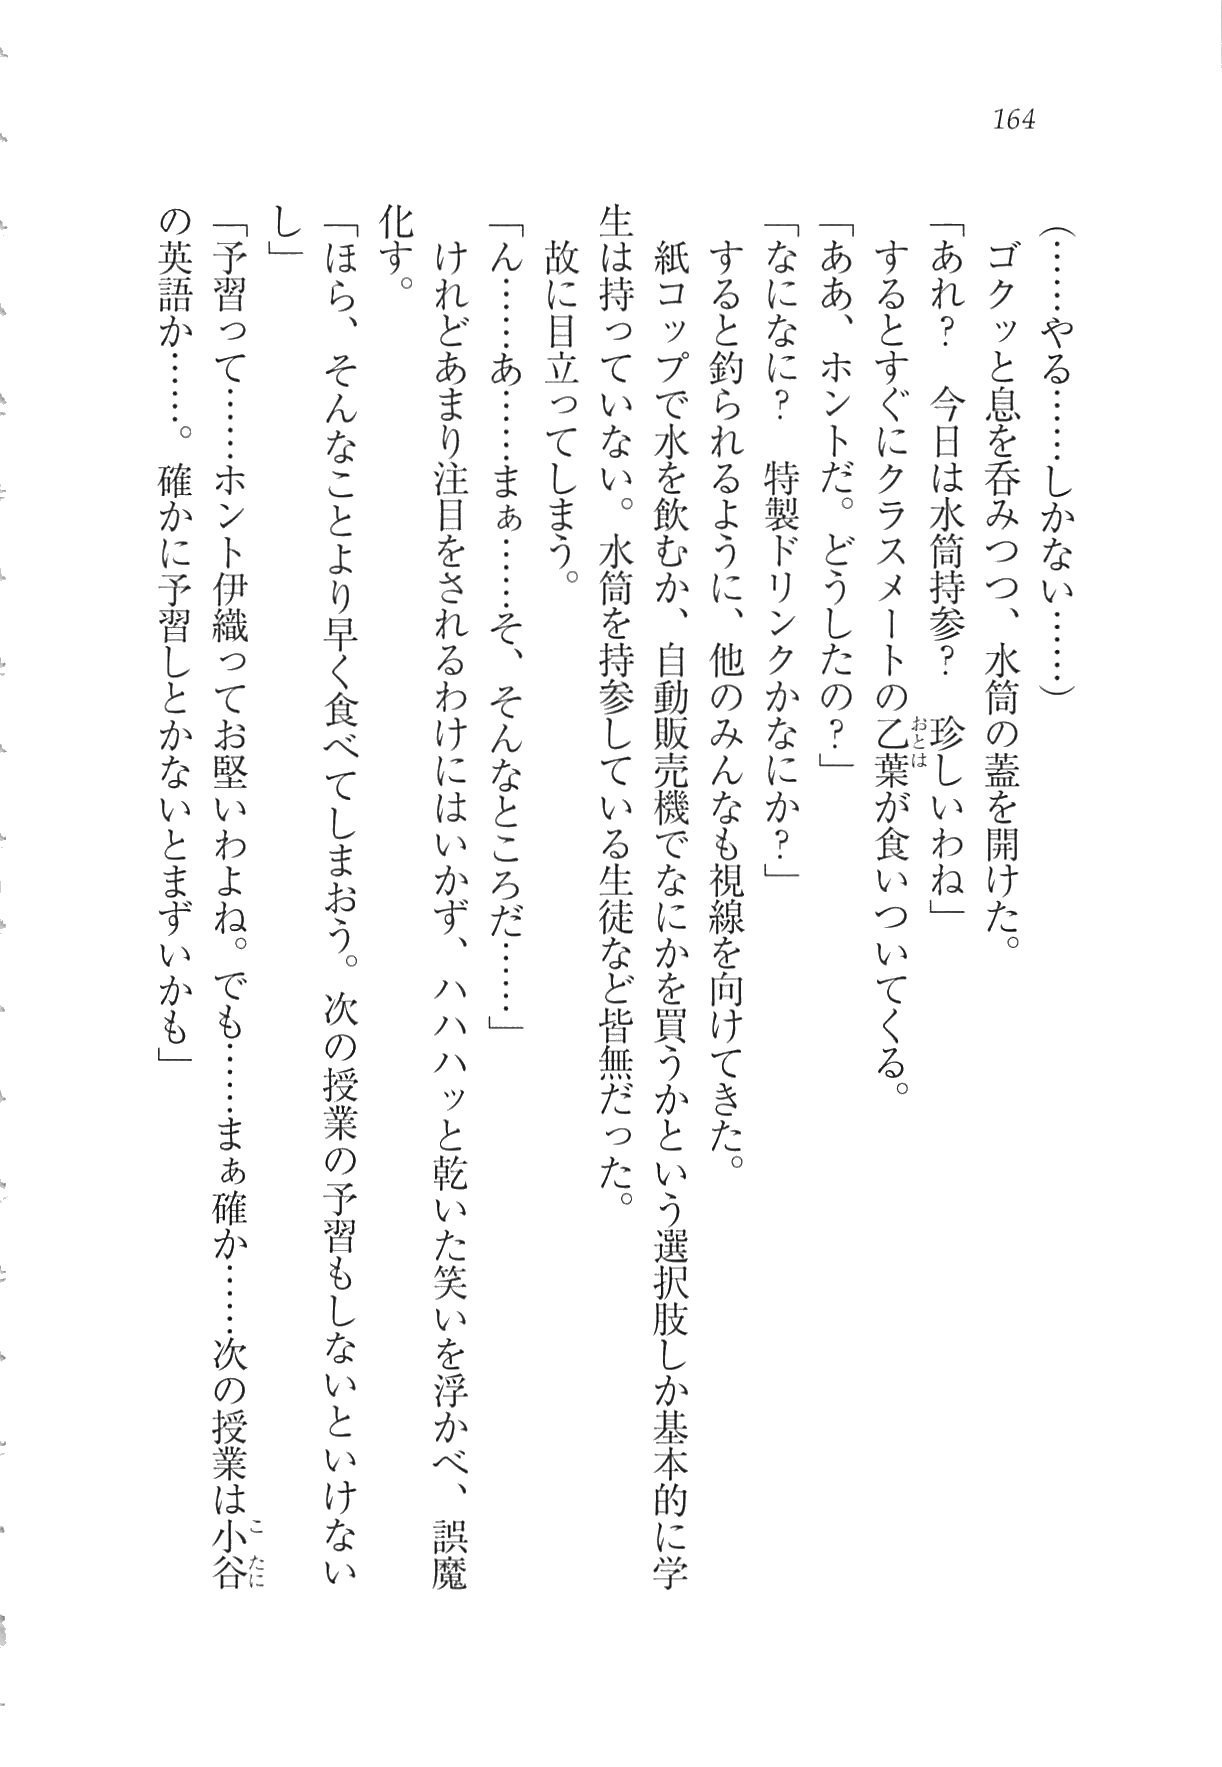 164
（……やる……しかない……）
　ゴクッと息を呑みつつ、水筒の蓋を開けた。
「あれ？　今日は水筒持参？　珍しいわね」
　するとすぐにクラスメートの乙葉が食いついてくる。
おとは
「ああ、ホントだ。どうしたの？」
「なになに？　特製ドリンクかなにか？」
　すると釣られるように、他のみんなも視線を向けてきた。
　紙コップで水を飲むか、自動販売機でなにかを買うかという選択肢しか基本的に学
生は持っていない。水筒を持参している生徒など皆無だった。
　故に目立ってしまう。
「ん……あ……まぁ……そ、そんなところだ……」
　けれどあまり注目をされるわけにはいかず、ハハハッと乾いた笑いを浮かべ、誤魔
化す。
「ほら、そんなことより早く食べてしまおう。次の授業の予習もしないといけない
し」
「予習って……ホント伊織ってお堅いわよね。でも……まぁ確か……次の授業は小谷
こたに
の英語か……。確かに予習しとかないとまずいかも」